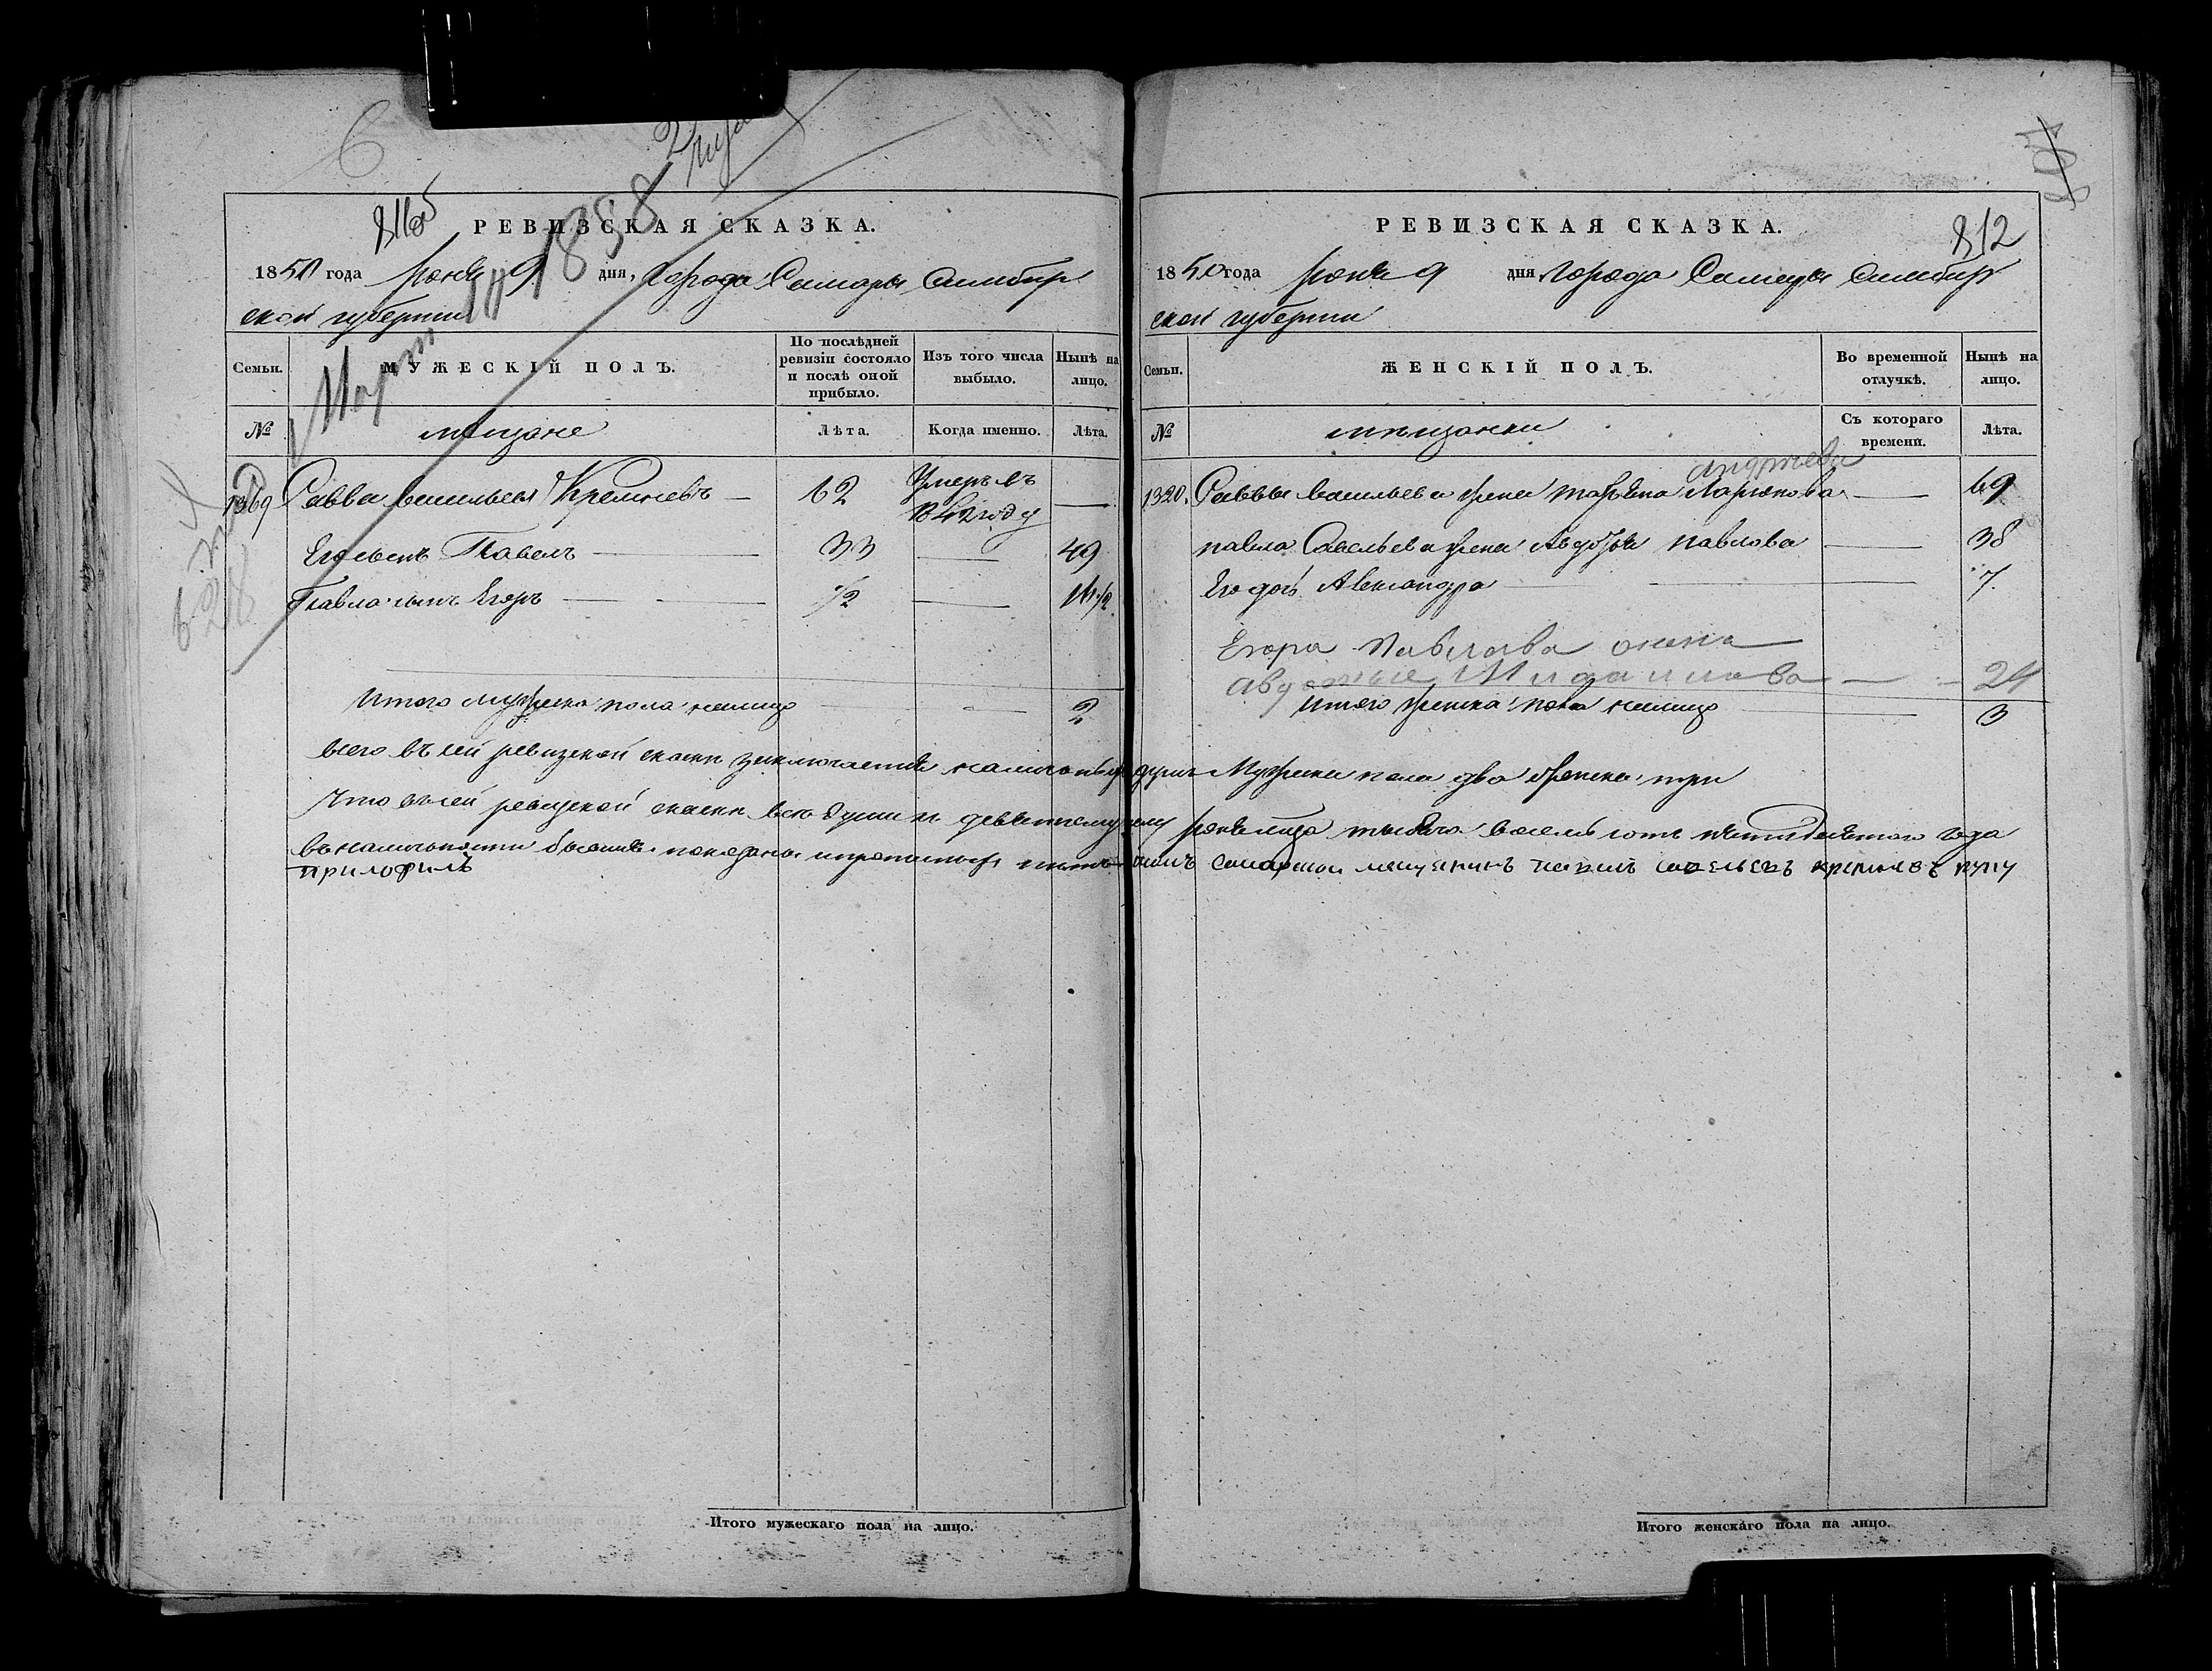 6
811об
РЕВИЗСКАЯ СКАЗКА.
1850 года июня 9 дня, Города Самары Симбир
ской губернии
Март 1858
Семьи.
МУЖЕСКІЙ ПОЛЪ.
По послѣдней ревизіи состояло и послѣ оной прибыло.
Изъ того числа выбыло.
Нынѣ на лицо.
№
мещане
Лѣта.
Когда именно.
Лѣта.
Савва васильевъ Кремневъ 62 Умеръ въ
1842 году
Его сынъ Павелъ 33 49
Павла сынъ Егоръ 1/2 16 1/2
Итого мужеска пола налицо 2
812
РЕВИЗСКАЯ СКАЗКА.
1850 года июня 9 дня Города Самары Симбир
ской губернии
Семьи.
ЖЕНСКІЙ ПОЛЪ.
Во временной отлучкѣ.
Нынѣ на лицо.
№
мещанки
Съ котораго времени.
Лѣта.
андреева
1320. Саввы васильева жена Ларионова 69
павла Савельева жена Авдотья павлова 38
Его дочь Александра 7
Егора Павлова жена
24
Итого женска пола налицо 3
всего въ сей ревизской скаски заключается наличныхъ душъ Мужеска пола два женска три
Что въ сей ревизской скаски все души к девятому июня месяца тысяча восемь сотъ пятидесятого года
в наличности бывшие показаны и прописныхъ нетъ самарской мещанинъ павелъ савельевъ кремневъ руку
приложилъ
Итого мужескаго пола на лицо.
Итого женскаго пола на лицо.